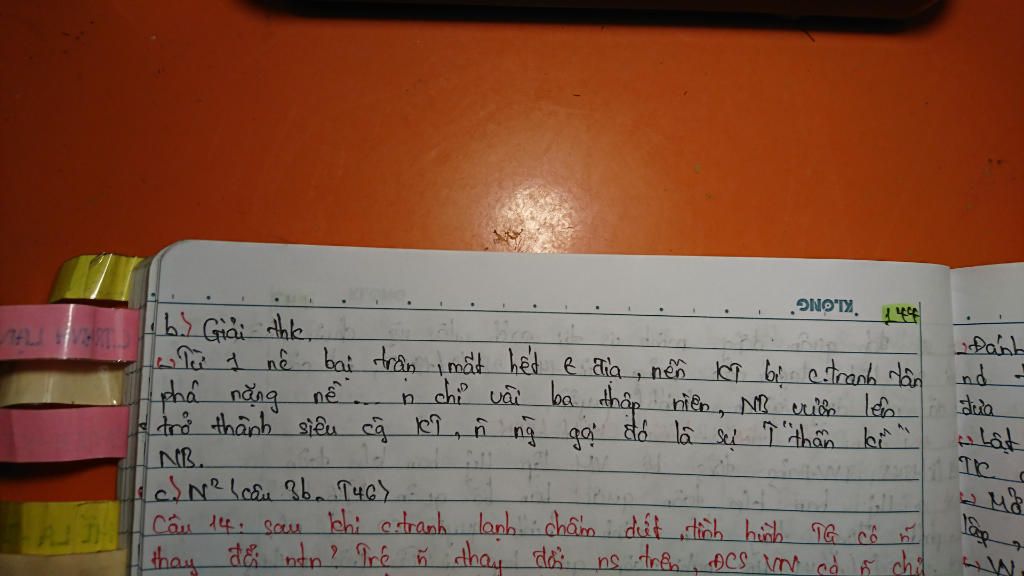 KLONG
144
b.) Giải thk.
↳ Từ 1 nc bại trận, mất hết t đía, nền KT bị c.tranh tàn
phá nặng nề... n chỉ vài ba thập niên, NB vươn lên
trở thành siêu cg KT, n ng gọi đó là sự T "thần kì"
NB.
c.) N² (câu 3b. T46)
Câu 14: sau khi c.tranh lạnh chấm dứt, tình hình TG có n
thay đổi ntn? Trc n thay đổi ns trên, ĐCS VN có n chủ
Đánh
nd
đưa
↳ Lật
TK
↳ Mở
lập,